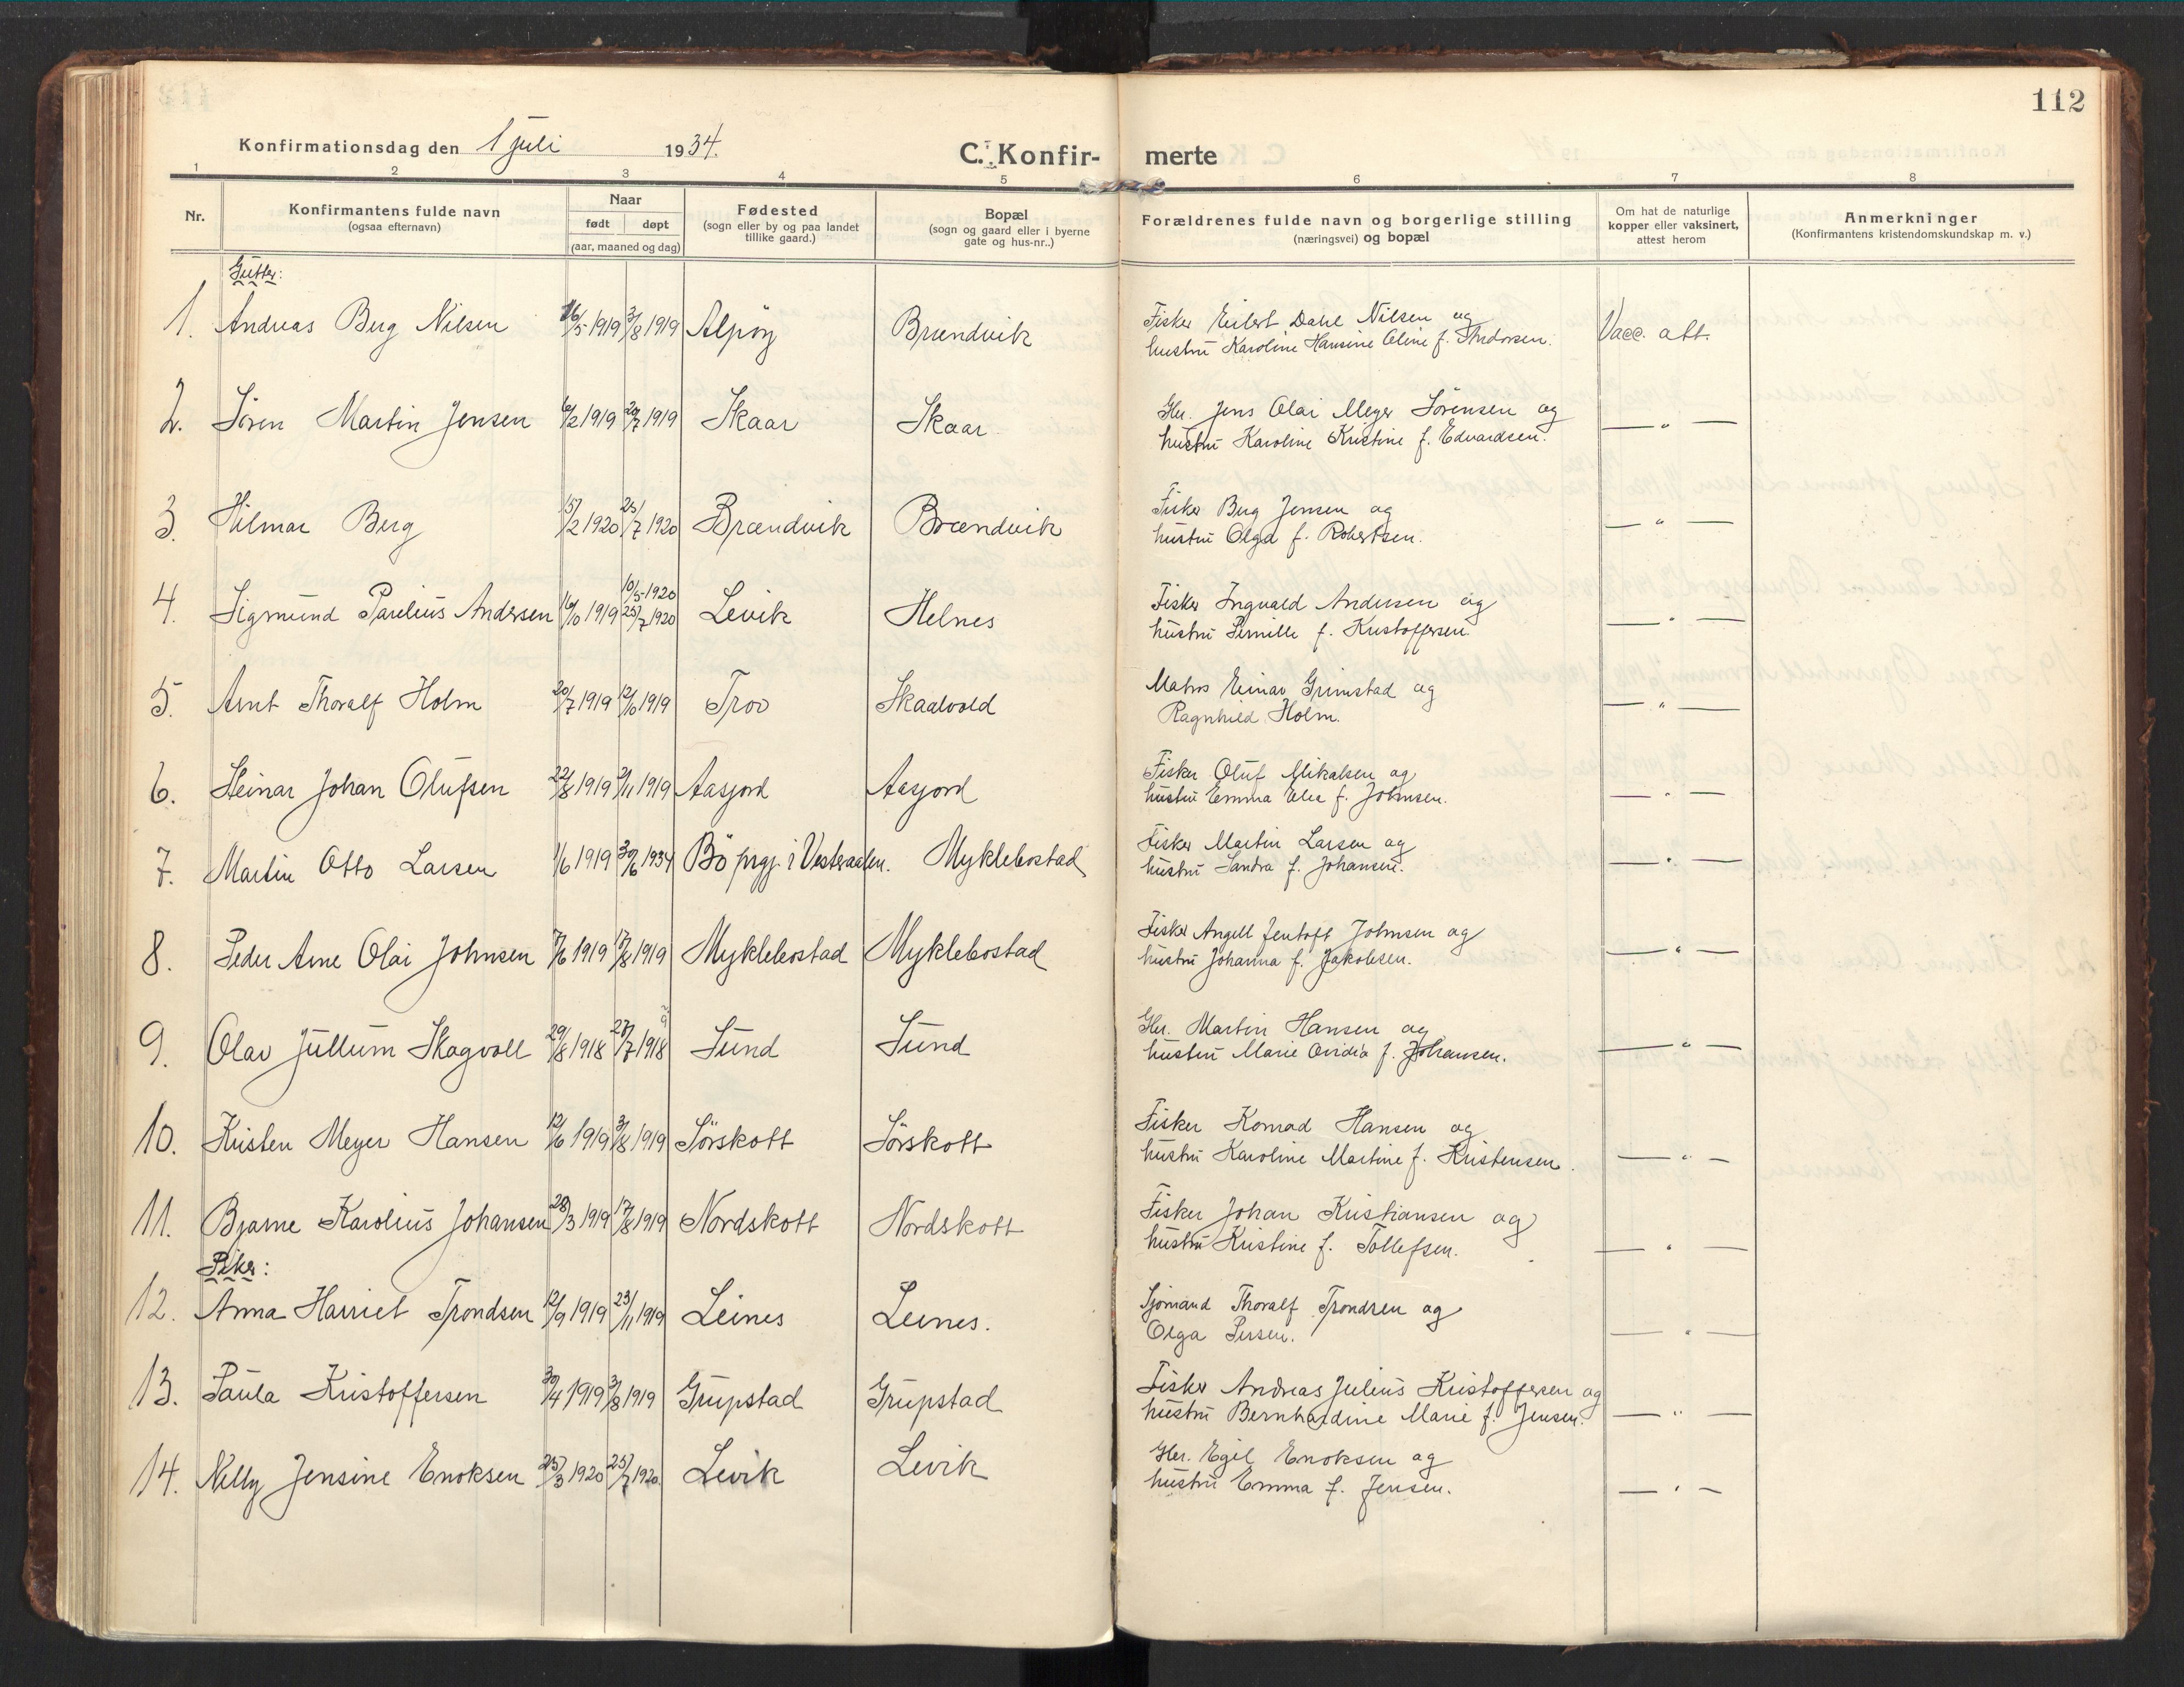 112
Konfirmationsdag den 1 juli 1934.
C. Konfir- merte
1 2 3 4 5 6 7 8
Nr.
Konfirmantens fulde navn
(ogsaa efternavn)
Naar
født døpt
(aar, maaned og dag)
Fødested
(sogn eller by og paa landet
tillike gaard.)
Bopæl
(sogn og gaard eller i byerne
gate og hus-nr..)
Forældrenes fulde navn og borgerlige stilling
(næringsvei) og bopæl
Om hat de naturlige
kopper eller vaksinert,
attest herom
Anmerkninger
(Konfirmantens kristendomskundskap m. v.)
Gutter:
1. Andreas Berg Nilsen 16/5 1919 3/8 1919 Alpöy Brændvik
Fisker Eilert Dahl Nilsen og
hustru Karoline Hansine Oline f. Andorsen. Vacc. att.
2. Sören Martin Jensen 16/2 1919 20/7 1919 Skaar Skaar
Gbr. Jens Olai Meyer Sörensen og
hustru Karoline Kristine f. Edvardsen. — " —
3. Hilmar Berg 15/2 1920 25/7 1920 Brændvik Brændvik
Fisker Berg Jensen og
hustru Olga f. Robertsen. — " —
4. Sigmund Parelius Andersen 16/10 1919 10/5-1920 25/7 1920 Levik Helnes
Fisker Ingvald Andersen og
hustru Pernille f. Kristoffersen — " —
5. Arnt Thoralf Holm 20/7 1919 12/10 1919 Troo Skaalvold
Matros Einar Grimstad og
Ragnhild Holm. — " —
6. Steinar Johan Olufsen 22/8 1919 2/11 1919 Aasjord Aasjord
Fisker Oluf Mikalsen og
hustru Emma Elie f. Johnsen. — " —
7. Martin Otto Larsen 1/6 1919 30/6 1934 Bö prgj. i Vesteraalen. Myklebostad
Fisker Martin Larsen og
hustru Sandra f. Johansen. — " —
8. Peder Arne Olai Johnsen 7/6 1919 17/8 1919 Myklebostad Myklebostad
Fisker Angell Jentoft Johnsen og
hustru Johanna f. Jakobsen. — " —
9. Olav Jullum Skagvoll 29/8 1918 27/7 1918 9 Sund Sund
Gbr. Martin Hansen og
hustru Marie Ovidia f. Johansen. — " —
10. Kristen Meyer Hansen 12/6 1919 3/8 1919 Sörskott Sörskott
Fisker Konrad Hansen og
hustru Karoline Martine f. Kristensen. — " —
11. Bjarne Karolius Johansen 28/3 1919 17/8 1919 Nordskott Nordskott
Fisker Johan Kristiansen og
hustru Kristine f. Tollefsen. — " —
Piker:
12. Anna Harriet Trondsen 12/9 1919 23/11 1919 Leines Leines.
Sjömand Thoralf Trondsen og
Olga Persen. — " —
13. Paula Kristoffersen 30/4 1919 3/8 1919 Grupstad Grupstad
Fisker Andreas Julius Kristoffersen og
hustru Bernhardine Marie f. Jensen. — " —
14. Nelly Jensine Enoksen 25/3 1920 25/7 1920 Levik Levik
Gbr. Egil Enoksen og
hustru Emma f. Jensen. — " —